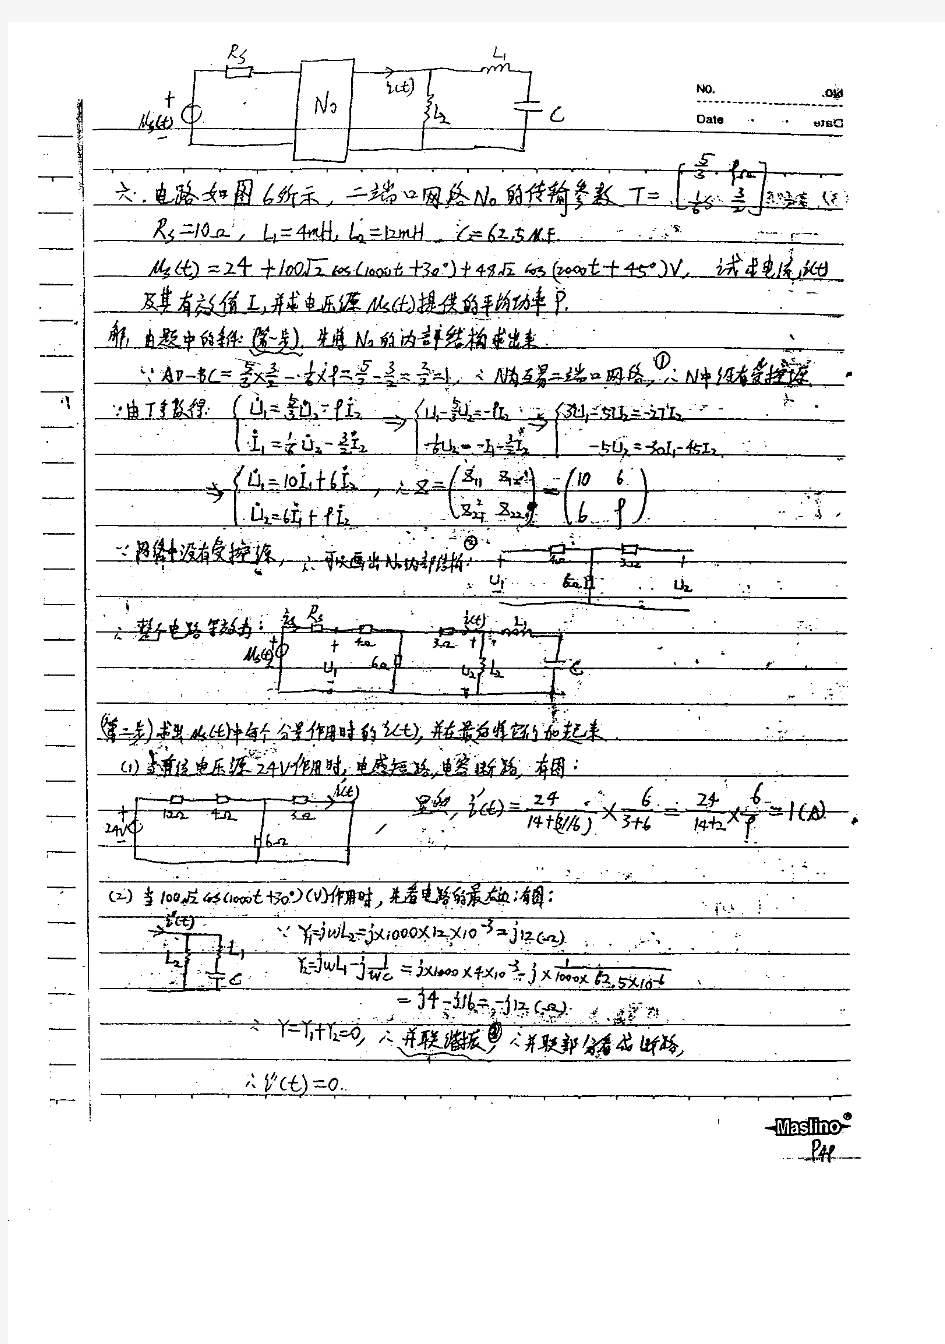 Rs L₁
+ us(t) − N₀ i(t) L₂ C
NO.
Date
六. 电路如图6所示, 二端口网络N₀的传输参数 T = [5/3 9Ω; 1/6 S 3/2]
Rs=10Ω, L₁=4mH, L₂=12mH, C=62.5μF.
us(t)=24+100√2 cos(1000t+30°)+48√2 cos(2000t+45°)V, 试求电流i(t)
及其有效值I, 并求电压源us(t)提供的平均功率P.
解, 由题中的条件 (第一步). 先将N₀的内部结构求出来
∵ AD-BC=5/3×3/2-1/6×9=5/2-3/2=1, ∴N为互易二端口网络, ① ∴N中没有受控源
∵由T参数得: { U̇₁=5/3U̇₂-9İ₂ ⇒ { U₁-5/3U₂=-9I₂ ⇒ { 3U₁-5U₂=-27I₂
İ₁=1/6U̇₂-3/2İ₂ -1/6U₂=-I₁-3/2I₂ -5U₂=-30I₁-45I₂
⇒ { U̇₁=10İ₁+6İ₂ , ∴ Z=(Z₁₁ Z₁₂; Z₂₁ Z₂₂)=(10 6; 6 9)
U̇₂=6İ₁+9İ₂
∵网络中没有受控源, ∴可以画出N₀内部结构: ② U₁ 4Ω 6Ω 3Ω U₂
∴整个电路等效为: is Rs us(t) + U₁ − 4Ω 6Ω 3Ω i(t) + U₂ − L₂ L₁ C
(第二步) 求出us(t)中每个分量作用时的i(t), 并在最后将它们加起来
(1) 当直流电压源24V作用时, 电感短路, 电容断路, 有图:
+ 24V − 10Ω 4Ω 6Ω 3Ω i'(t) , i'(t)=24/(14+(3//6)) × 6/(3+6) = 24/(14+2) × 6/9 = 1(A).
(2) 当100√2 cos(1000t+30°)(V)作用时, 先看电路的最右边: 有图:
i''(t) L₂ L₁ C
∵ Y₁=jωL₂=j×1000×12×10⁻³=j12(Ω)
Y₂=jωL₁-j1/ωC=j×1000×4×10⁻³-j×1/(1000×62.5×10⁻⁶)
=j4-j16=-j12(Ω)
∴ Y=Y₁+Y₂=0, ∴并联谐振, ∴并联部分看成断路,
∴ i''(t)=0.
Maslino®
P49